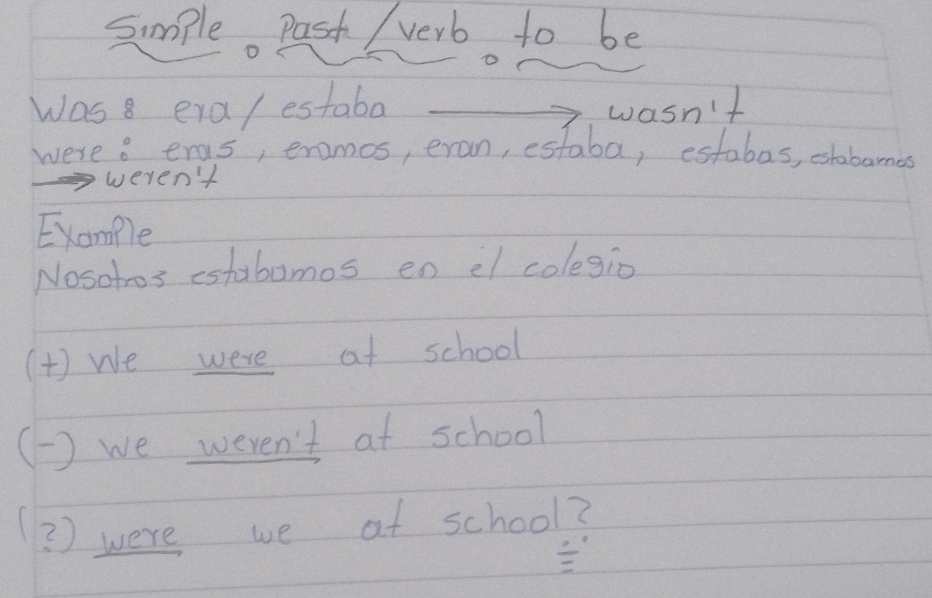 Simple Past / verb to be
Was: era / estaba → wasn't
were: eras, eramos, eran, estaba, estabas, estabamos
→ weren't
Example
Nosotros estabamos en el colegio
(+) We were at school
(-) we weren't at school
(?) were we at school?